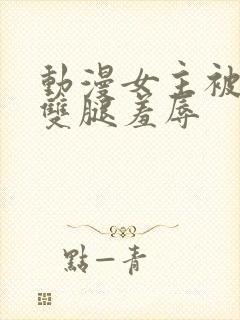 動漫女主被
雙腿羞辱
點一青